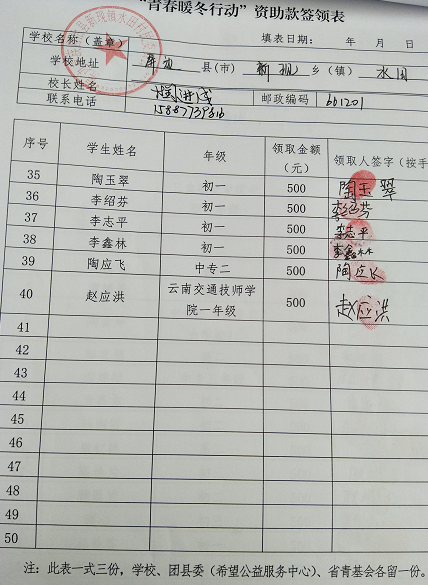 “青春暖冬行动”资助款签领表
学校名称(盖章) 填表日期: 年 月 日
学校地址 屏边 县(市) 新现 乡(镇) 水田
校长姓名
联系电话 邮政编码 661201
序号 学生姓名 年级 领取金额(元) 领取人签字(按手
35 陶玉翠 初一 500 陶玉翠
36 李绍芬 初一 500 李绍芬
37 李志平 初一 500 李志平
38 李鑫林 初一 500 李鑫林
39 陶应飞 中专二 500 陶应飞
40 赵应洪 云南交通技师学院一年级 500 赵应洪
41
42
43
44
45
46
47
48
49
50
注: 此表一式三份, 学校、团县委(希望公益服务中心)、省青基会各留一份。